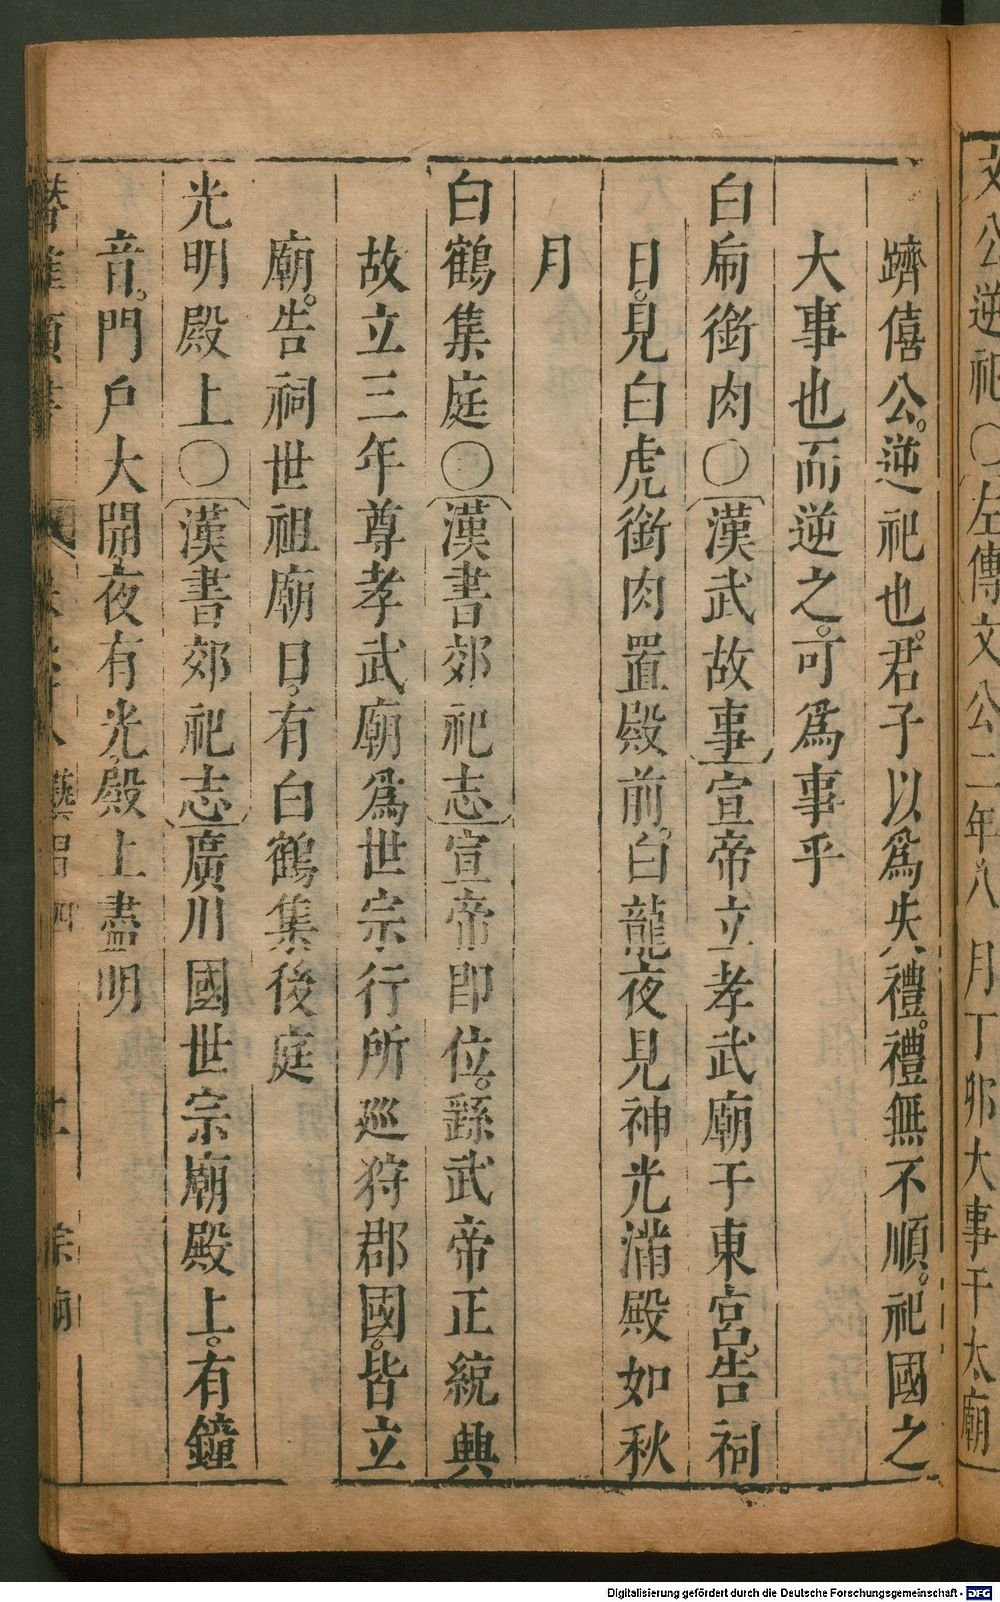 文公逆祀〇左傳文公二年八月丁卯大事于太廟
躋僖公。逆祀也。君子以爲失禮。禮無不順。祀國之
大事也而逆之。可爲事乎
白虎銜肉〇漢武故事宣帝立孝武廟于東宮。告祠
日。見白虎銜肉置殿前。白龍夜見神光滿殿如秋
月
白鶴集庭〇漢書郊祀志宣帝即位。繇武帝正統興
故立三年尊孝武廟爲世宗行所巡狩郡國。皆立
廟。告祠世祖廟日。有白鶴集後庭
光明殿上〇漢書郊祀志廣川國世宗廟殿上。有鐘
音。門戶大開。夜有光。殿上盡明
Digitalisierung gefördert durch die Deutsche Forschungsgemeinschaft - DFG